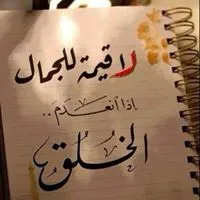 لا قيمة للجمال
إذا انعدم..
الخلُق